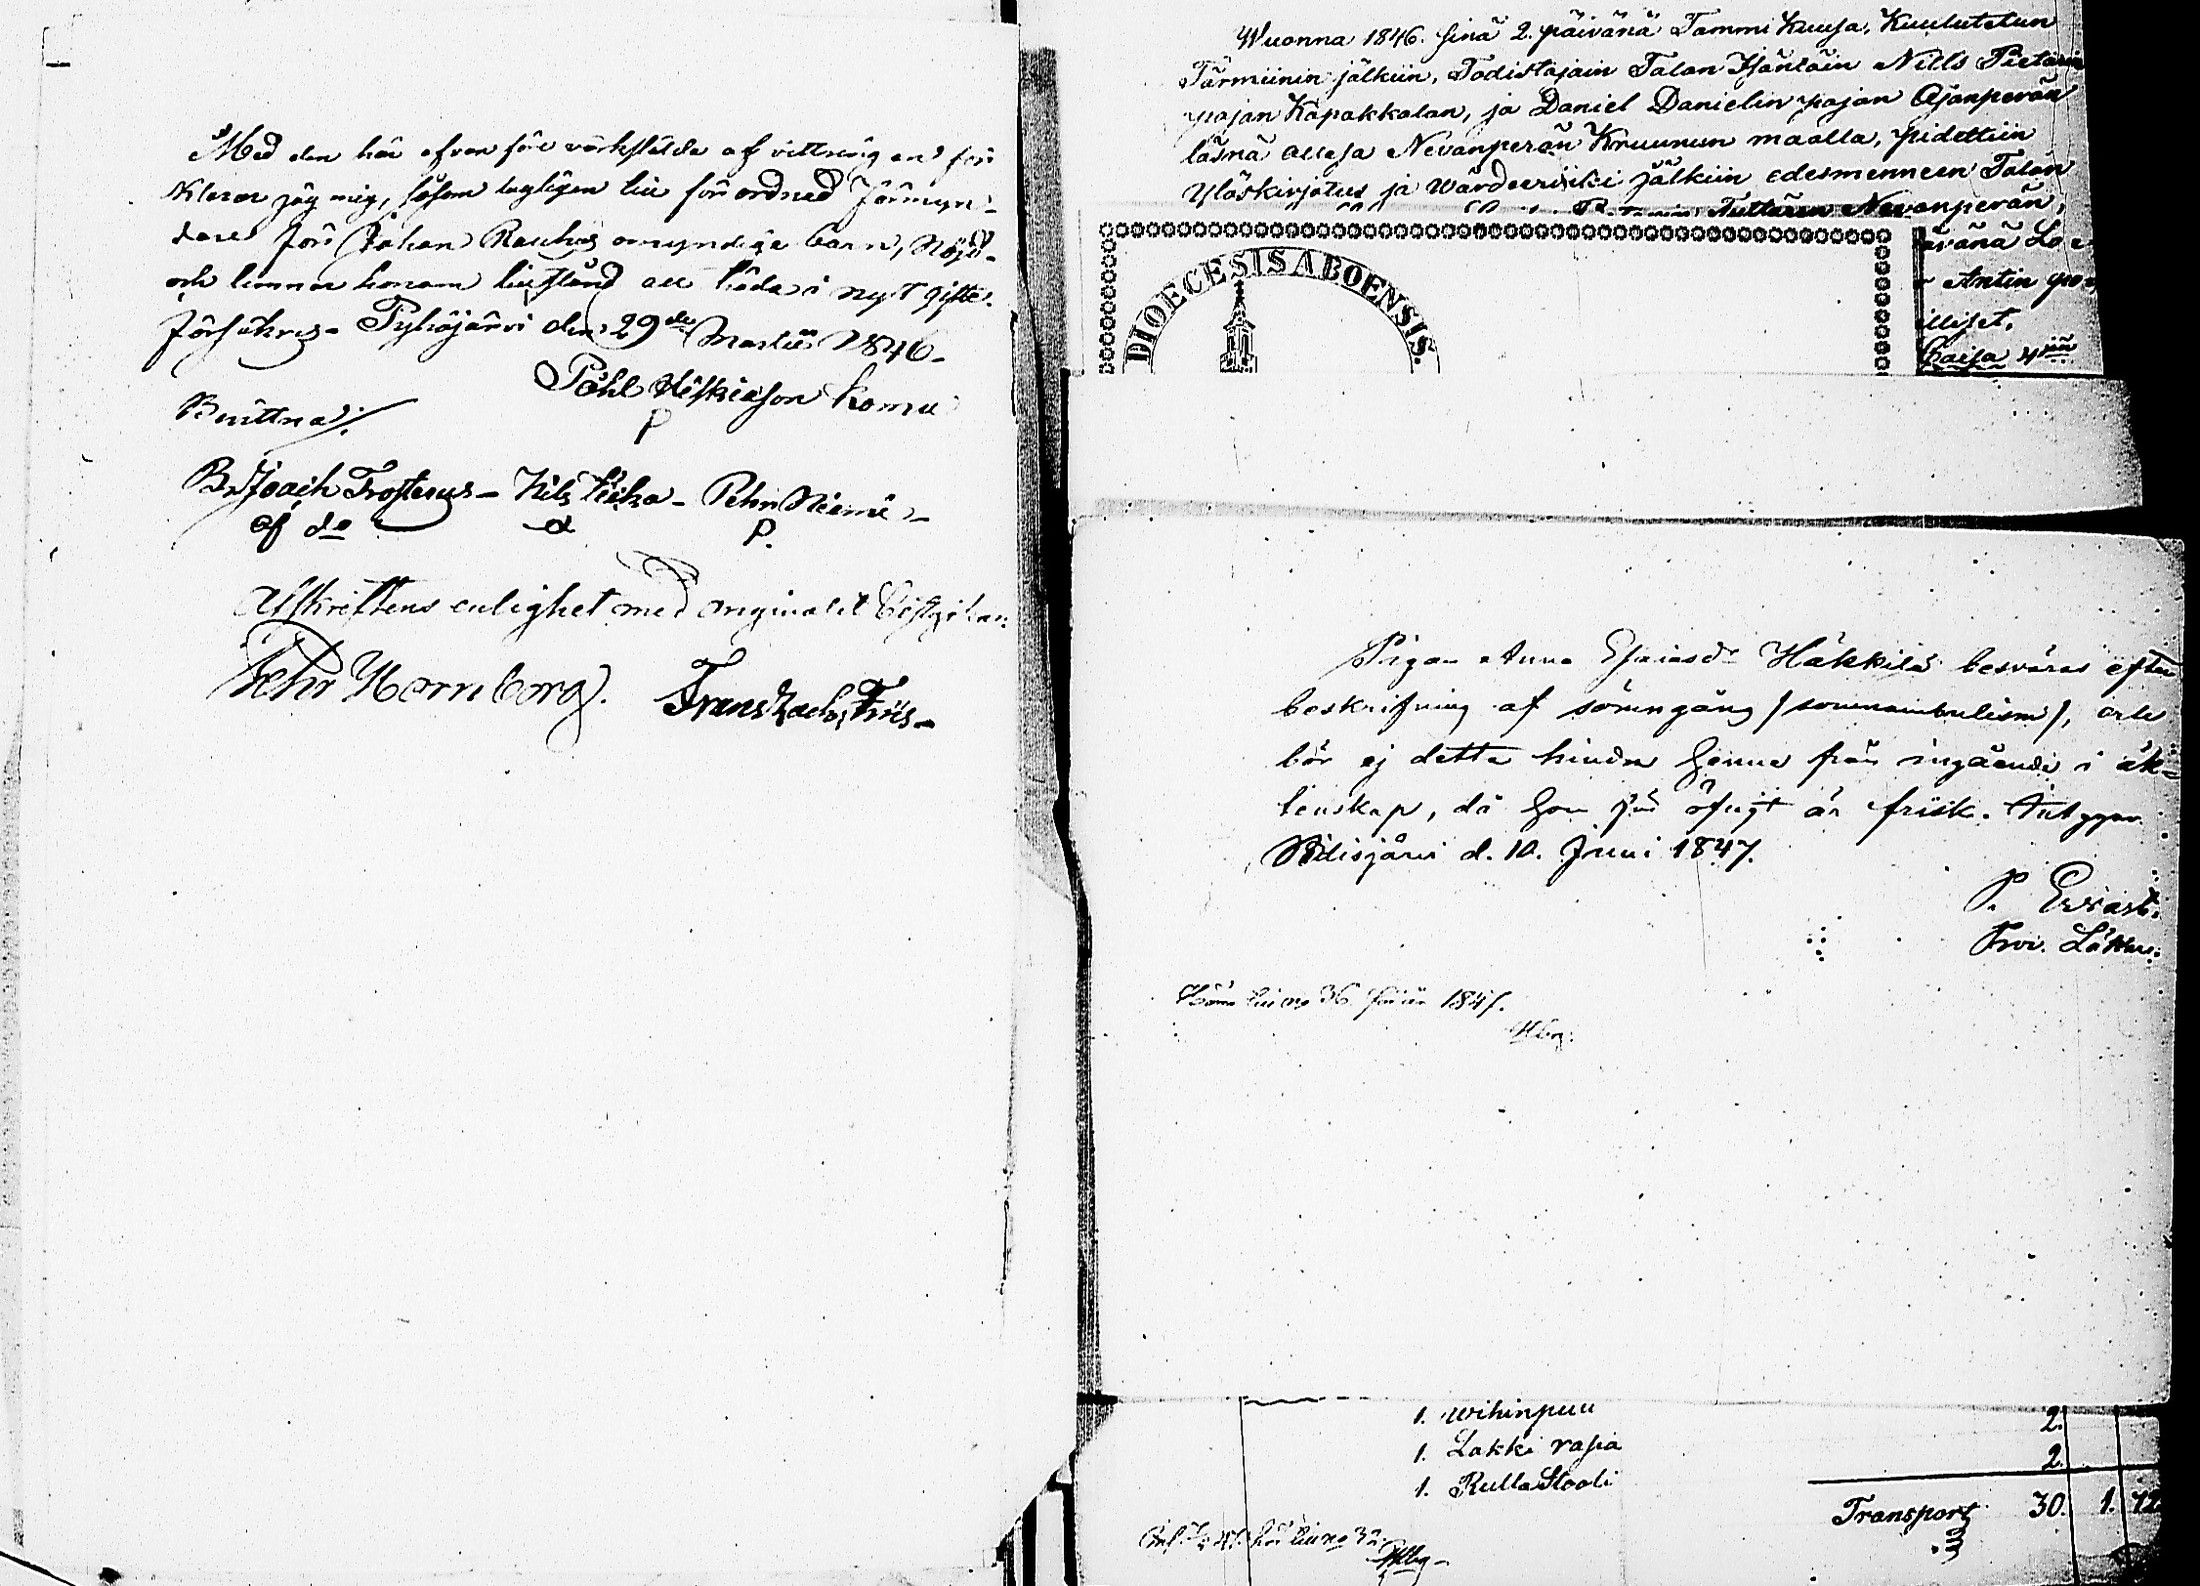 Med den här ofvan före verkstälde afvittring en för
klarar jag mig, såsom lagligen till förordnad Förmyn-
dare för Johan Rauhas omyndiga barn, nöjd-
och lemnar honom tillstånd att träda i nytt gifte.
försäkras Pyhäjärvi den 29de Martii 1846-
Påhl Heskiasson Komu
P
Bevittna:/.
Br Joach Frosterus - Nils Leha - Pehr Niemi -
af do
P.
Afskriftens enlighet med originalet bestyrka:
Pehr Hornborg. Frans Zach. Friis-
Wuonna 1846. sinä 2. päivänä Tammi Kuusa, Kuulutetun
Tärmiinin jälkiin, Todistajain Talon Isäntäin Nills Pietarin
pojan Kapakkalan, ja Daniel Danielin pojan Ojanperän
läsnä ollesa Nevanperän Kruunun maalla, pidettiin
Ylöskirjotus ja wärdeerinki jälkiin edesmenneen Talon
Tuttären Nevanperän,
DIOECESIS ABOENSIS.
Antin po
illiset.
Caisa
Pigan Anna Esaiasdr Häkkilä besväras efter
beskrifning af sömngång /somnambulism/, och
bör ej detta hindra henne från ingående i äk-
tenskap, då hon för öfrigt är frisk.
Nidisjärvi d. 10. Juni 1847.
P. Ewast.
Prov. Läkare.
Hörer till no 36 för år 1847.
Hbrg:
1. Wihinpuu 2.
1. Lakki rasia 2.
1. Rulla Stooli
Transport 30. 1. 72
hör till no 32.
Hbg-